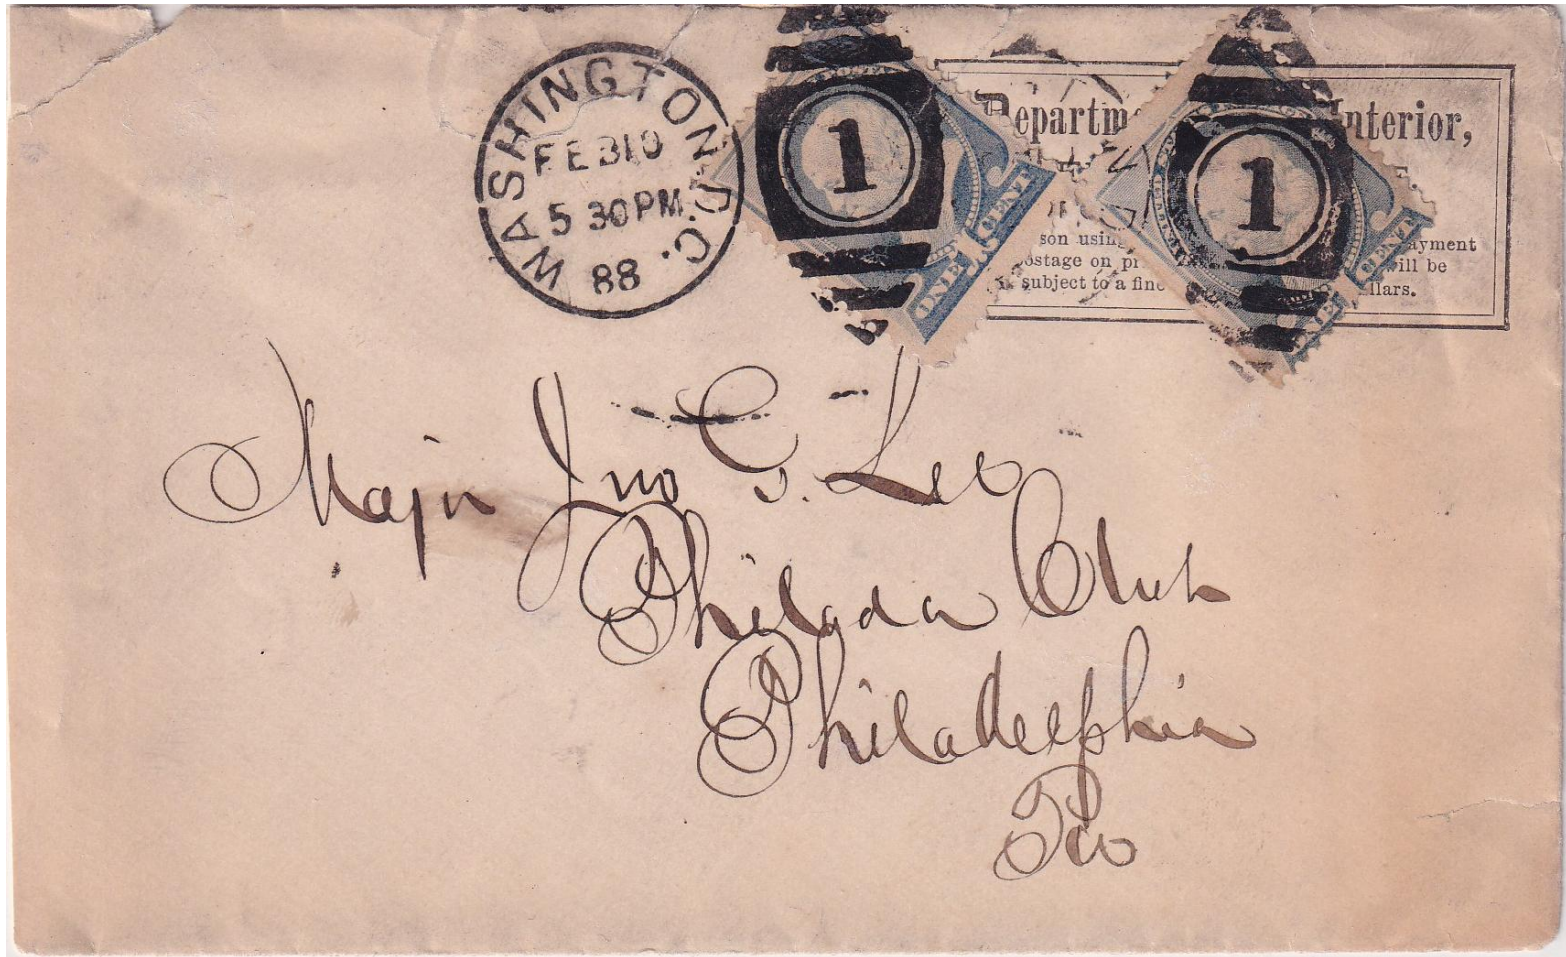 WASHINGTON, D.C.
FEB 10
5 30 PM
88
1
1
Departm Interior,
son using ayment
ostage on pr will be
subject to a fine llars.
ONE 1 CENT
CENT
Major Jno G. Lee
Philada Club
Philadelphia
Pa